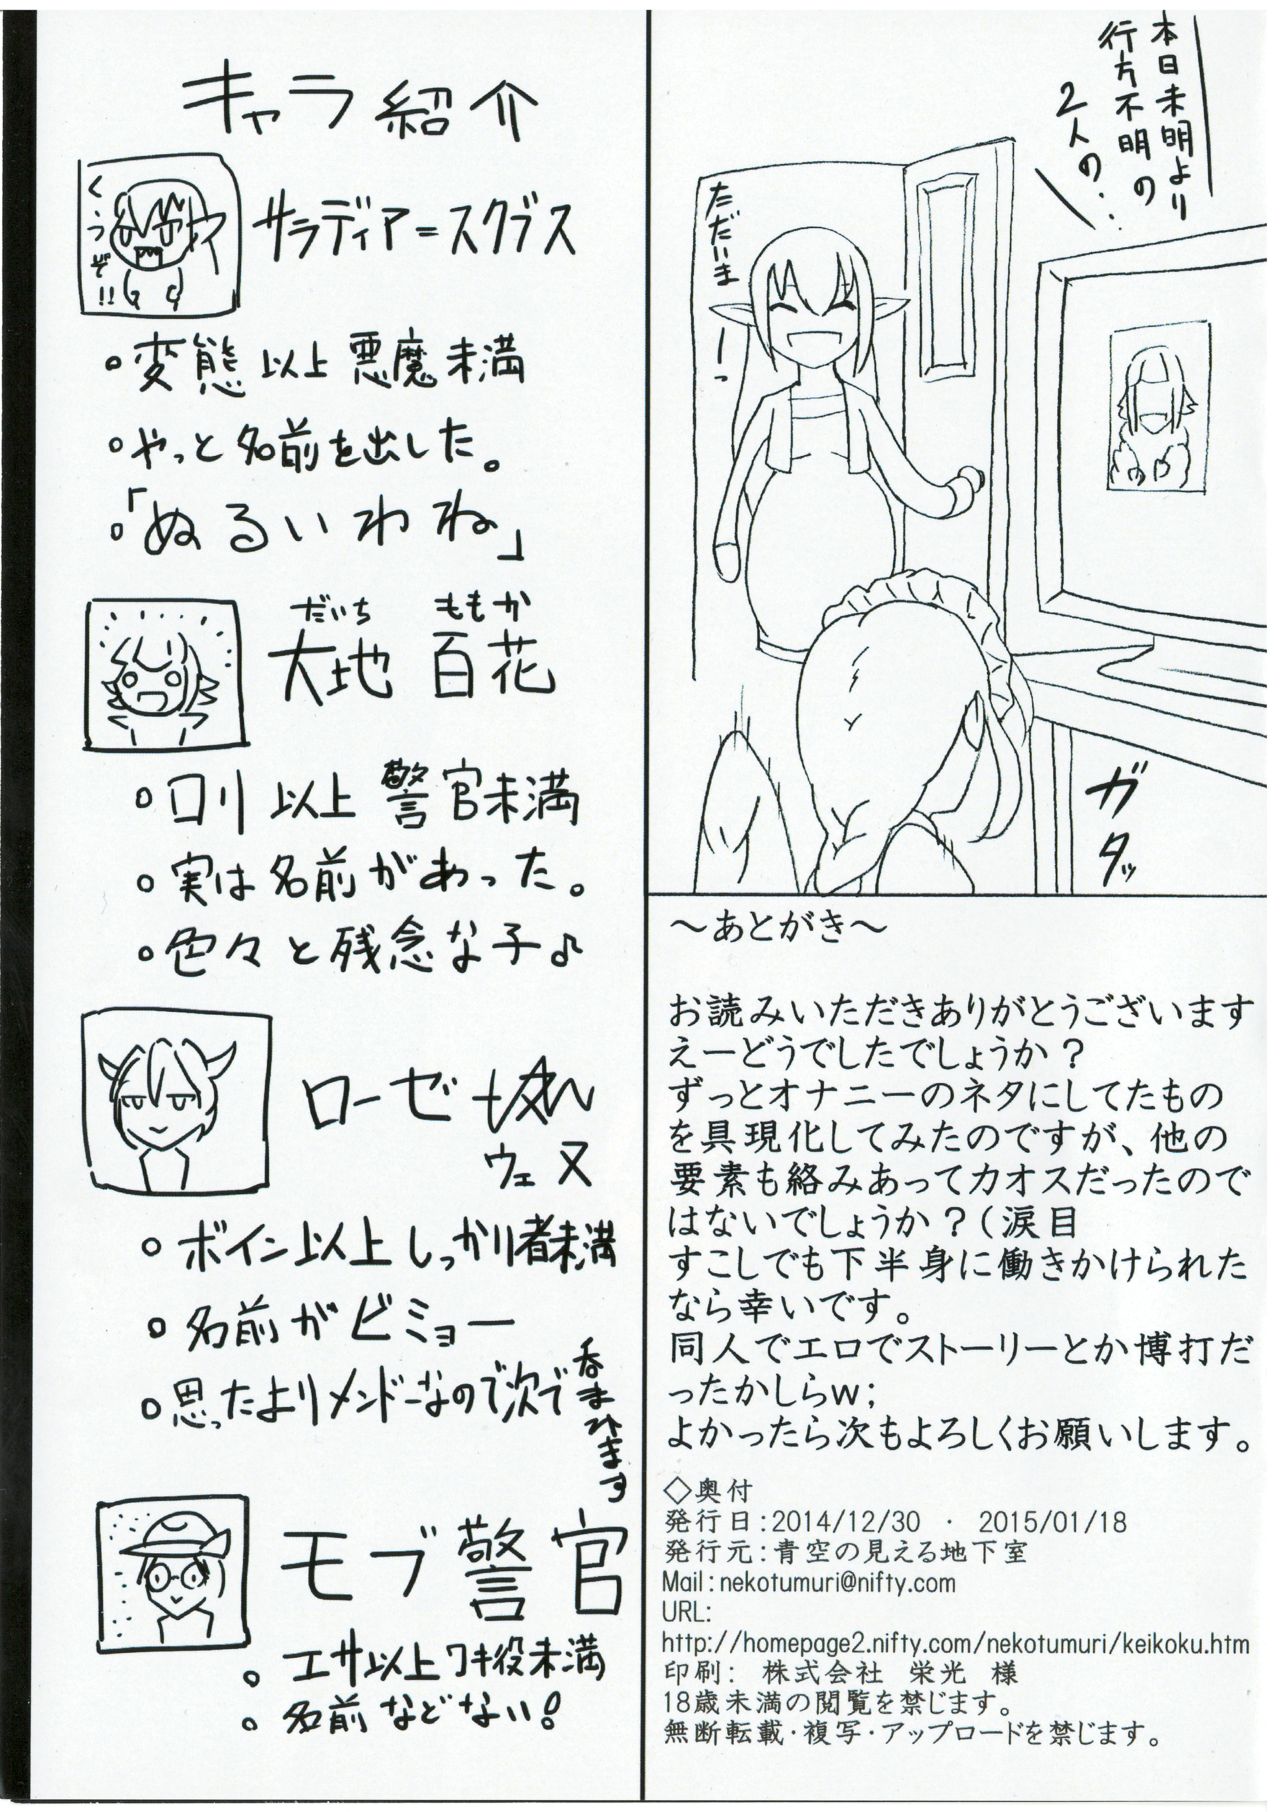 本日未明より
行方不明の
2人の…
ただいまーっ
ガタッ
キャラ紹介
くうぞ!!
サラディア=スクブス
。変態以上悪魔未満
。やっと名前を出した。
。「ぬるいわね」
だいち ももか
大地 百花
。ロリ以上 警官未満
。実は名前があった。
。色々と残念な子♪
ローゼ
ウェヌ
。ボイン以上しっかり者未満
。名前がビミョー
。思ったよりメンドーなので次で
呑まれます
モブ警官
。エサ以上ワキ役未満
。名前などない!
～あとがき～
お読みいただきありがとうございます
えーどうでしたでしょうか?
ずっとオナニーのネタにしてたもの
を具現化してみたのですが、他の
要素も絡みあってカオスだったので
はないでしょうか?(涙目
すこしでも下半身に働きかけられた
なら幸いです。
同人でエロでストーリーとか博打だ
ったかしらw;
よかったら次もよろしくお願いします。
◇奥付
発行日:2014/12/30 ・ 2015/01/18
発行元:青空の見える地下室
Mail:nekotumuri@nifty.com
URL:
http://homepage2.nifty.com/nekotumuri/keikoku.htm
印刷: 株式会社 栄光 様
18歳未満の閲覧を禁じます。
無断転載・複写・アップロードを禁じます。